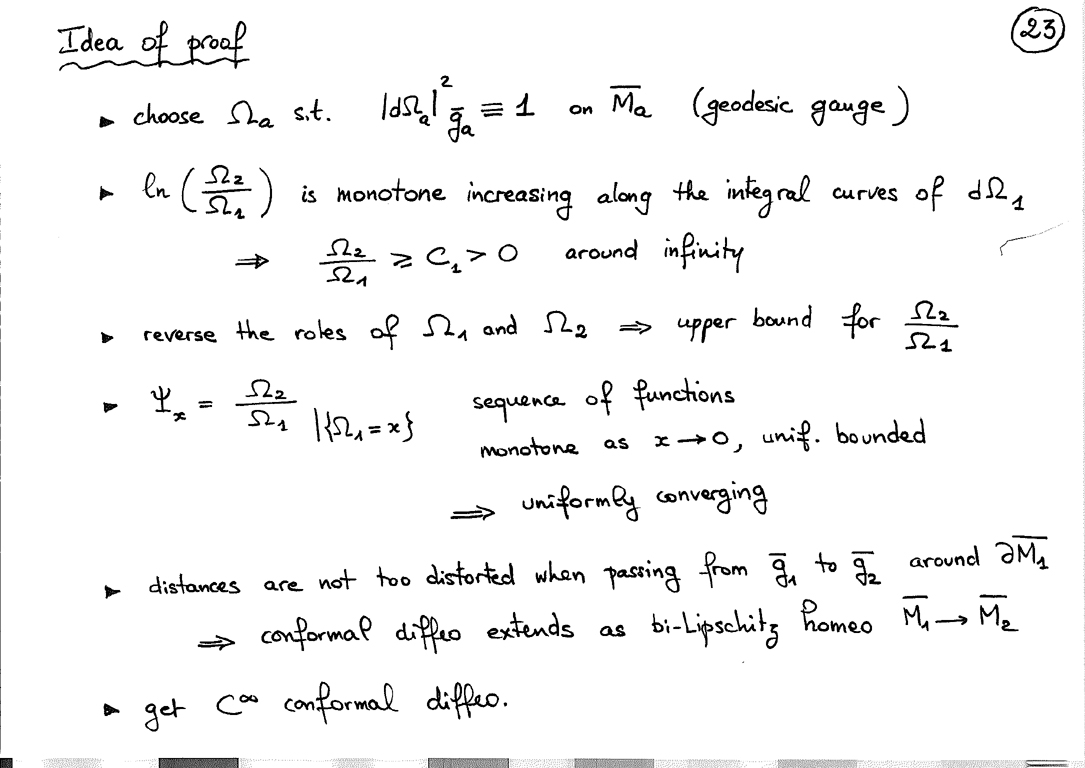 Idea of proof
23
▸ choose Ωₐ s.t. |dΩₐ|²_ḡₐ ≡ 1 on M̄ₐ (geodesic gauge)
▸ ln (Ω₂/Ω₁) is monotone increasing along the integral curves of dΩ₁
⇒ Ω₂/Ω₁ ⩾ C₁ > 0 around infinity
▸ reverse the roles of Ω₁ and Ω₂ ⇒ upper bound for Ω₂/Ω₁
▸ Ψₓ = Ω₂/Ω₁ |{Ω₁ = x} sequence of functions
monotone as x → 0, unif. bounded
⇒ uniformly converging
▸ distances are not too distorted when passing from ḡ₁ to ḡ₂ around ∂M̄₁
⇒ conformal diffeo extends as bi-Lipschitz homeo M̄₁ → M̄₂
▸ get C^∞ conformal diffeo.